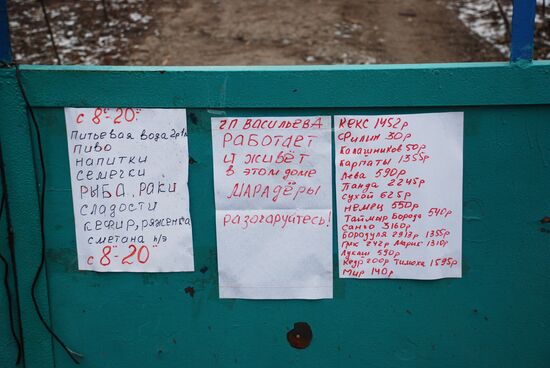 с 8⁰⁰-20⁰⁰
питьевая вода 2р 1л
пиво
напитки
семечки
РЫБА, РАКИ
сладости
кефир, ряженка
сметана п/э
с 8⁰⁰-20⁰⁰
гл ВАСИЛЬЕВА
РАБОТАЕТ
И ЖИВЁТ
в этом доме
МАРАДЁРЫ
разочаруйтесь!
КЕКС 1452р
Филин 30р
Калашников 50р
Карпаты 1355р
Лева 590р
Панда 2245р
Сухой 625р
Немец 550р
Таймыр Борода 540р
Санко 3160р
Бородуля 2913р 1355р
Грек 242р Марис 1310р
Лукаш 590р
Кедр 200р Тимоха 1595р
Мир 140р